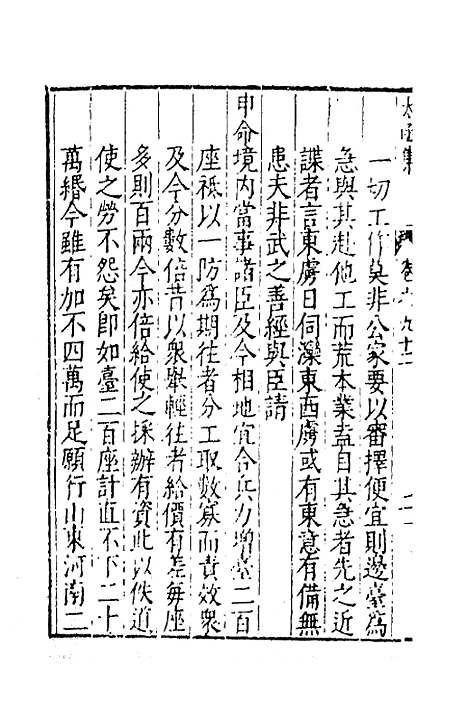 太函集
卷之九十二
一切工作莫非公家要以審擇便宜則邊臺為
急與其赴他工而荒本業盍自其急者先之近
諜者言東虜日伺灤東西虜或有東意有備無
患夫非武之善經與臣請
申命境內當事諸臣及今相地宜合兵力增臺二百
座祗以一防為期往者分工取數寡而責效衆
及今分數倍昔以衆舉輕往者給價有差每座
多則百兩今亦倍給使之採辦有資此以佚道
使之勞不怨矣即如臺二百座計直不下二十
萬緡今雖有加不四萬而足願行山東河南二